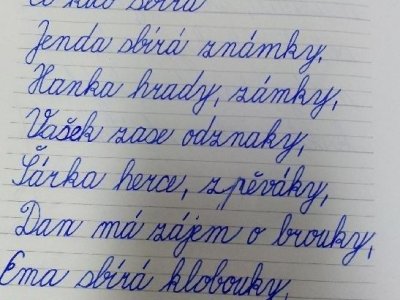 Co kdo sbírá
Jenda sbírá známky,
Hanka hrady, zámky,
Vašek zase odznaky,
Šárka herce, zpěváky,
Dan má zájem o brouky,
Ema sbírá klobouky